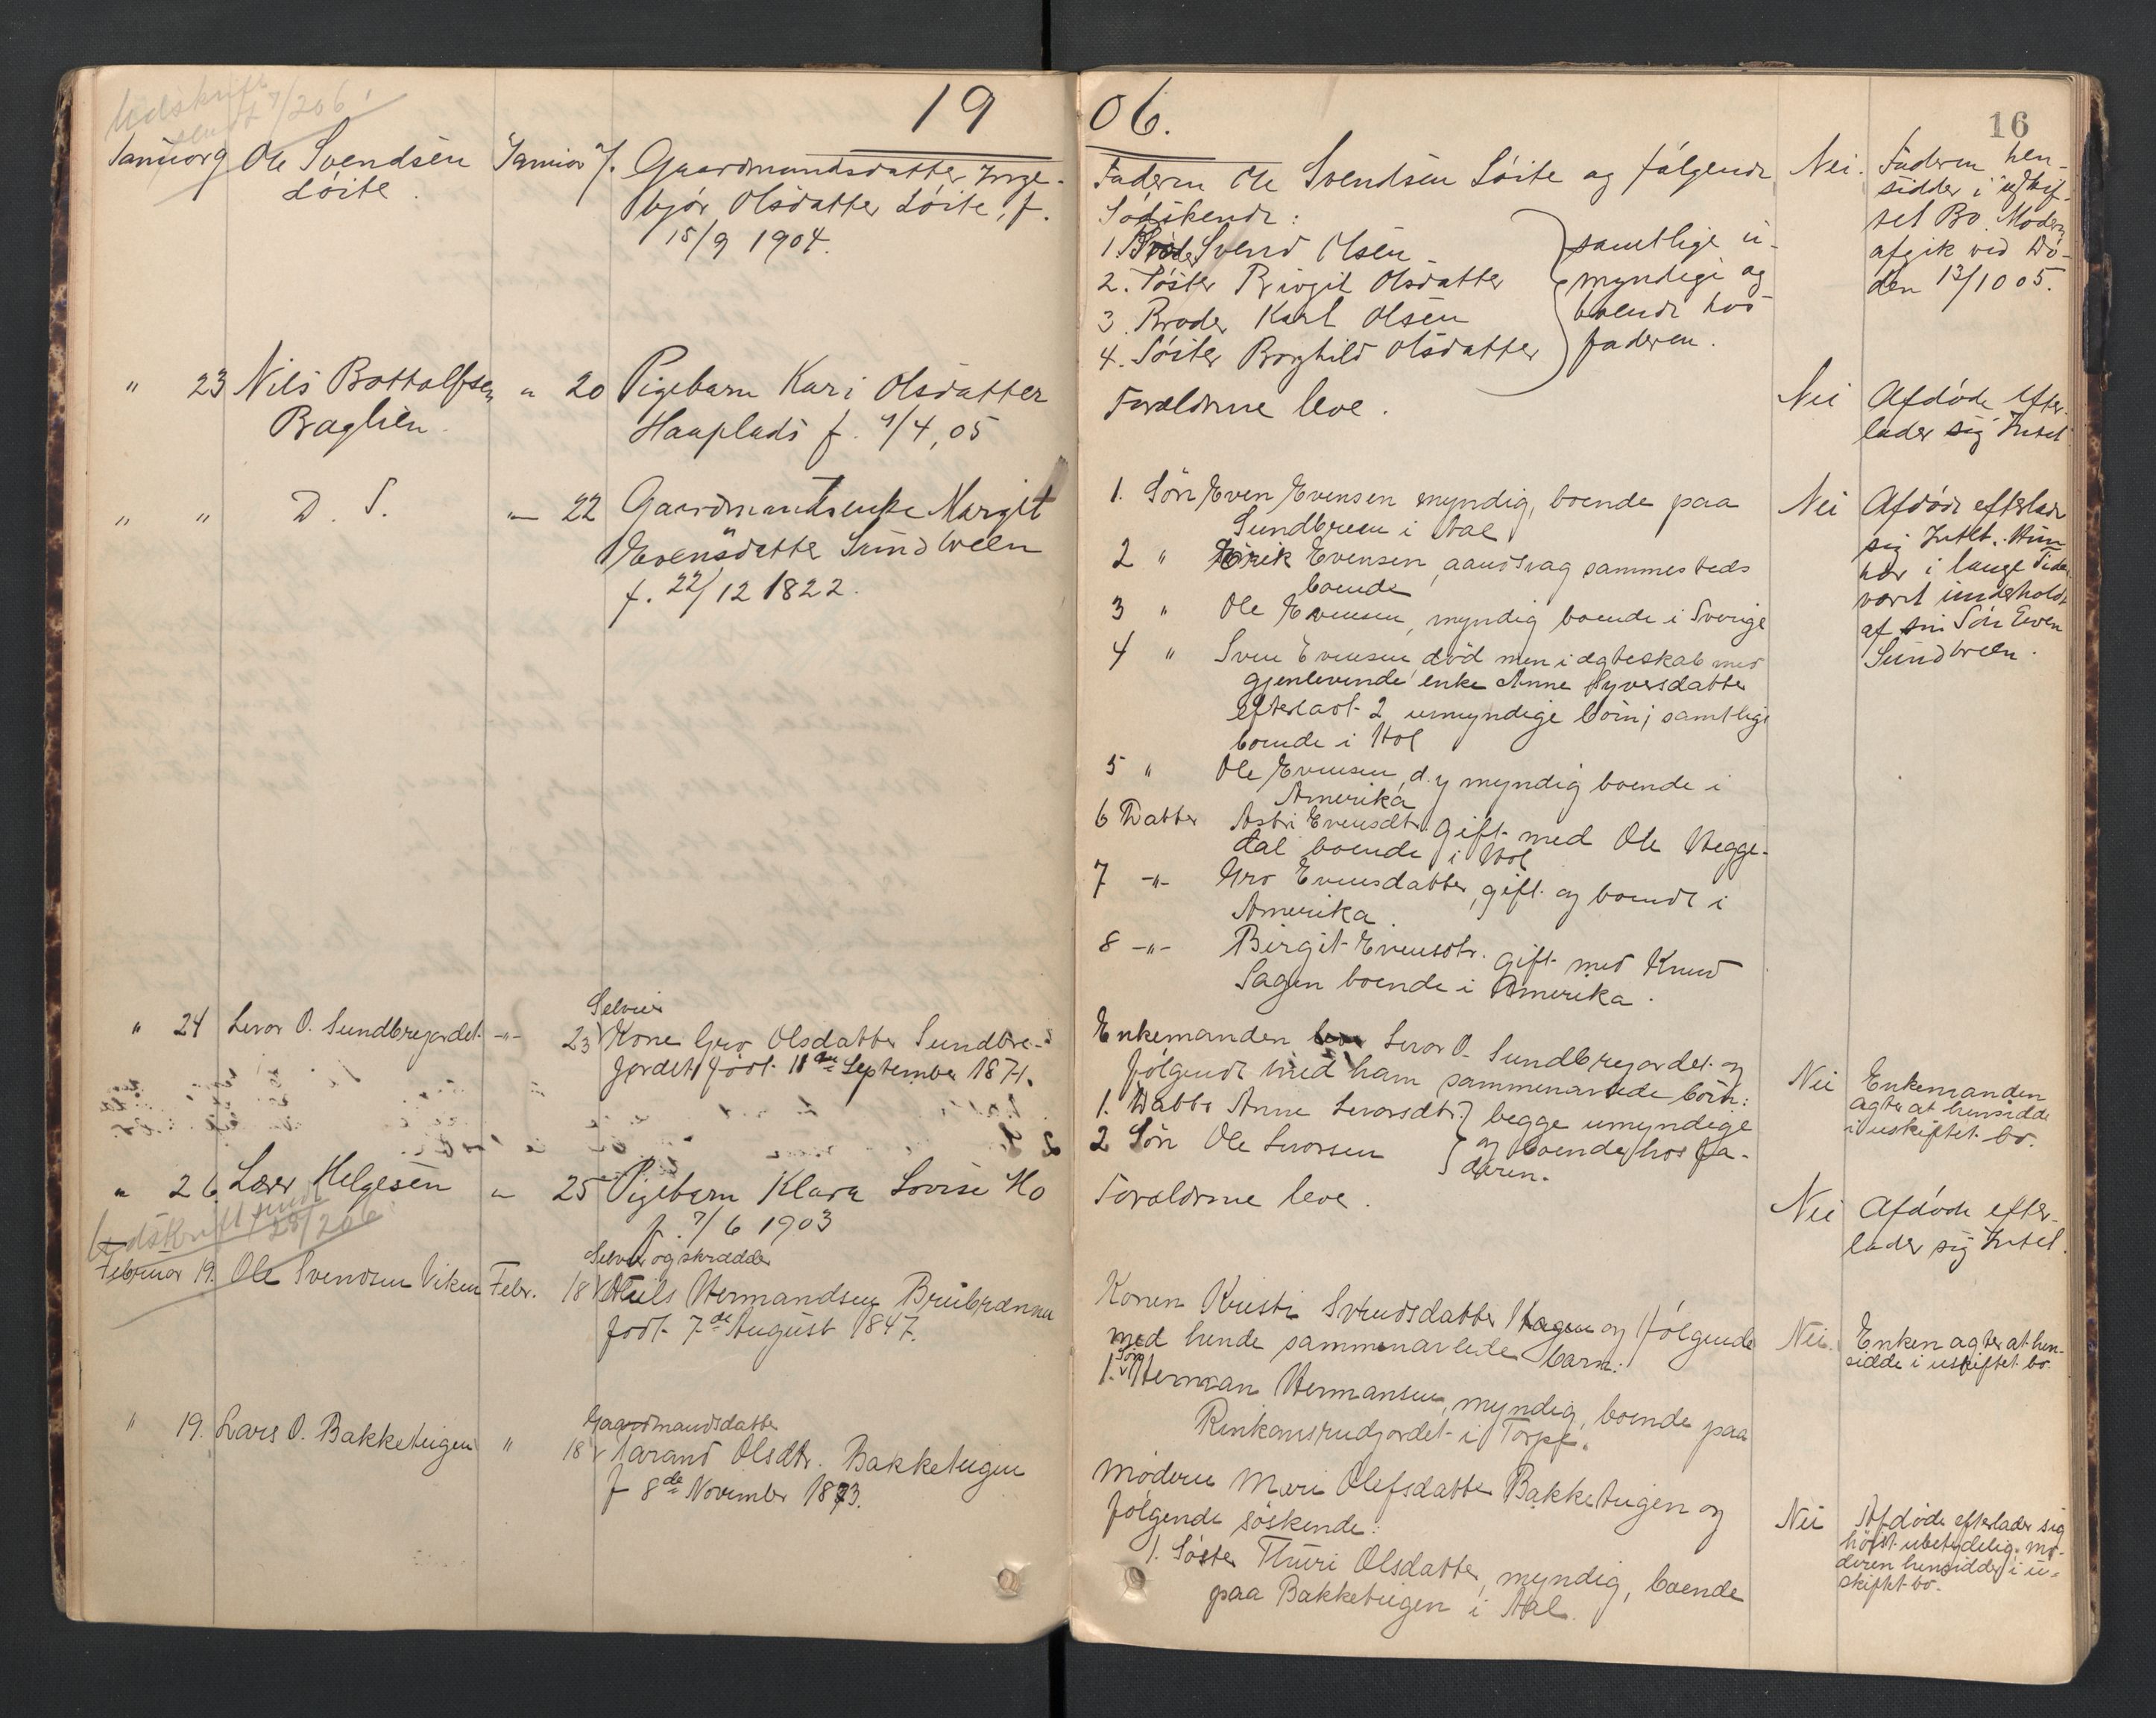 Udskrift
sendt 7/2 06
1906.
16
Januar 9 Ole Svendsen
Löite.
Januar
Gaardmandsdatter Inge-
björ Olsdatter Löite, f.
15/9 1904.
Faderen Ole Svendsen Löite og følgende
Södskende:
1. Broder Svend Olsen
2. Söster Birgit Olsdatter
3. Broder Karl Olsen
4. Söster Borghild Olsdatter
samtlige u-
myndige og
boende hos
faderen.
Nei.
Faderen hen-
sidder i uskif-
tet Bo. Moderen
afgik ved Dö-
den 13/10 05.
" 23 Nils Bottolfsen
Baglien.
" 20 Pigebarn Kari Olsdatter
Haaplads f. 4/4, 05
Forældrene leve.
Nei
Afdöde efter-
lader sig Intet
" " D. S.
" 22 Gaardmandsenke Margit
Evensdatter Sundbreen
f. 22/12 1822.
1. Sön Even Evensen myndig, boende paa
Sundbreen i Aal
2 " Eirik Evensen, aandsvag sammesteds
boende
3 " Ole Evensen, myndig boende i Sverige
4 " Sven Evensen död men i ægteskab med
gjenlevende enke Anne Syversdatter
efterladt 2 umyndige börn; samtlige
boende i Hol
5 " Ole Evensen, d.y myndig boende i
Amerika
6 Datter Astri Evensdtr. gift med Ole Hegge-
dal boende i Hol
7 -"- Gro Evensdatter, gift og boende i
Amerika.
8 -"- Birgit Evensdtr. gift med Knud
Sagen boende i Amerika.
Nei
Afdöde efterlader
sig Intet. Hun
har i lange Tider
vært underholdt
af sin Sön Even
Sundbreen.
" 24 Levor O. Sundbrejordet
-"- 23
Selveier
Kone Gro Olsdatter Sundbre-
jordet födt 18de September 1871.
Enkemanden Levor O. Sundbrejordet og
følgende med ham sammenavlede börn:
1. Datter Anne Levorsdtr.
2 Sön Ole Levorsen
begge umyndige
og boende hos fa-
deren.
Nei
Enkemanden
agter at hensidde
i uskiftet bo.
" 26 Lærer Helgesen
" 25 Pigebarn Klara Lovise Ho
f. 7/6 1903
Forældrene leve.
Nei
Afdöde efter-
lader sig Intet.
Udskrift
28/2 06
Februar 19. Ole Svendsen Viken
Febr. 18
Selveier og skrædder
Niels Hermandsen Breibrænna
födt 7de August 1847.
Konen Kristi Svendsdatter Hagen og følgende
med hende sammenavlede barn:
1. Sön Herman Hermansen, myndig, boende paa
Rinkansrudjordet i Torpe.
Nei.
Enken agter at hen-
sidde i uskiftet bo.
" 19. Lars O. Bakketeigen
" 18
Gaardmandsdatter
Marand Olsdtr. Bakketeigen
f 8de November 1873.
Moderen Mari Olefsdatter Bakketeigen og
følgende söskende:
1. Söster Thuri Olsdatter, myndig, boende
paa Bakketeigen i Aal.
Nei
Afdöde efterlader sig
höist ubetydelig. Mo-
deren hensidder i u-
skiftet bo.